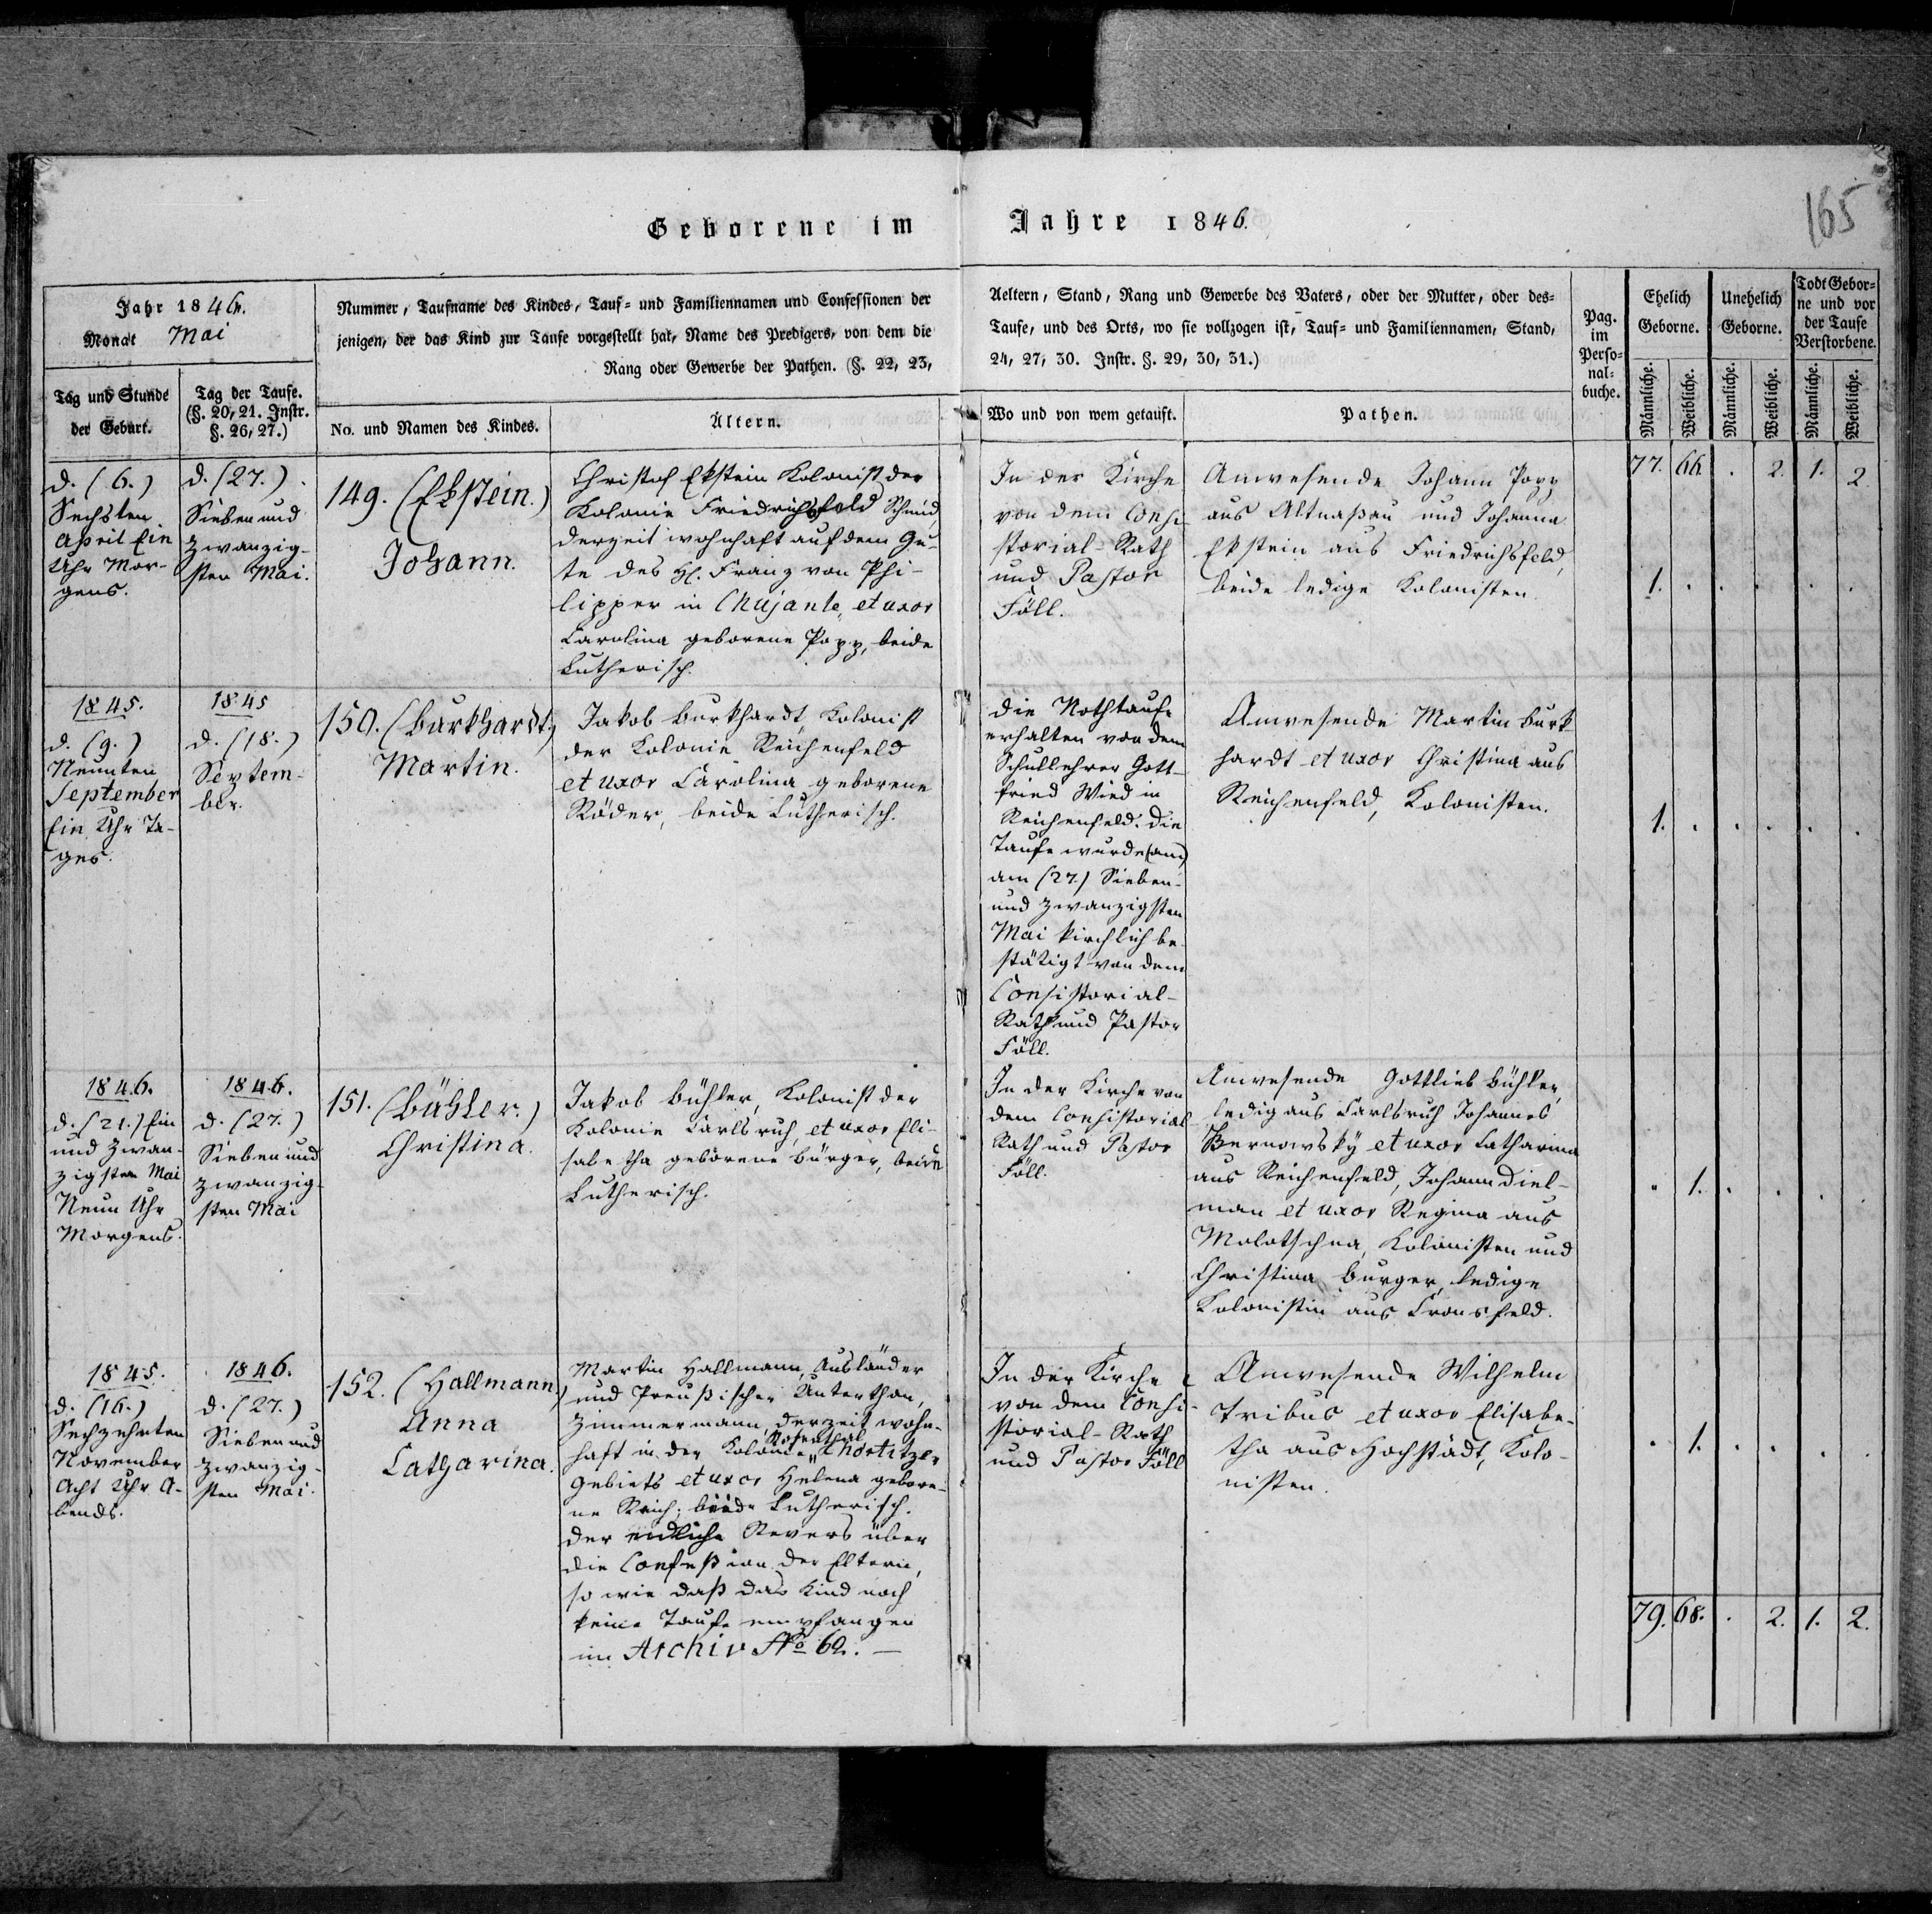 Geborene im Jahre 1846.
165
Jahr 1846.
Monat Mai
Tag und Stunde
der Geburt.
Tag der Taufe.
(§. 20, 21. Instr.
§. 26, 27.)
Nummer, Taufname des Kindes, Tauf- und Familiennamen und Confessionen der
jenigen, der das Kind zur Taufe vorgestellt hat, Name des Predigers, von dem die
Rang oder Gewerbe der Pathen. (§. 22, 23,
No. und Namen des Kindes.
Ältern.
Aeltern, Stand, Rang und Gewerbe des Vaters, oder der Mutter, oder des=
Taufe, und des Orts, wo sie vollzogen ist, Tauf- und Familiennamen, Stand,
24, 27, 30. Instr. §. 29, 30, 31.)
Wo und von wem getauft.
Pathen.
Pag.
im
Perso=
nal=
buche.
Ehelich
Geborne.
Unehelich
Geborne.
Todt Gebor=
ne und vor
der Taufe
Verstorbene.
Männliche.
Weibliche.
Männliche.
Weibliche.
Männliche.
Weibliche.
77. 66. . 2. 1. 2.
d. (6.)
Sechsten
April Ein
Uhr Mor-
gens.
d. (27.)
Sieben und
zwanzig-
sten Mai.
149. (Ekstein.)
Johann.
Christof Ekstein Kolonist der
Kolonie Friedrichsfeld Schmid,
derzeit wohnhaft auf dem Gu-
te des H. Franz von Phi-
lipper in et uxor
Carolina geborene Popp, beide
Lutherisch.
In der Kirche
von dem Consi-
storial-Rath
und Pastor
Föll.
Anwesende Johann Popp
aus Altnaßau und Johanna
Ekstein aus Friedrichsfeld,
beide ledige Kolonisten.
1. . . . . .
1845.
d. (9.)
Neunten
September
Ein Uhr Ta-
ges.
1845
d. (18.)
Septem-
ber.
150. (Burkhardt.)
Martin.
Jakob Burkhardt, Kolonist
der Kolonie Reichenfeld
et uxor Carolina geborene
Röder, beide Lutherisch.
die Nothtaufe
erhalten von dem
Schullehrer Gott-
fried Wied in
Reichenfeld. die
Taufe wurde (am)
am (27.) Sieben-
und zwanzigsten
Mai kirchlich be-
stätigt von dem
Consistorial-
Rath und Pastor
Föll.
Anwesende Martin Burk-
hardt et uxor Christina aus
Reichenfeld, Kolonisten.
1. . . . . .
1846.
d. (21.) Ein
und Zwan-
zigsten Mai
Neun Uhr
Morgens.
1846.
d. (27.)
Sieben und
zwanzig-
sten Mai
151. (Bühler.)
Christina.
Jakob Bühler, Kolonist der
Kolonie Carlsruh, et uxor Eli-
sabetha geborene Bürger, beide
Lutherisch.
In der Kirche von
dem Consistorial
Rath und Pastor
Föll.
Anwesende Gottlieb Bühler,
ledig aus Carlsruh Johannes
Bernowsky et uxor Catharina
aus Reichenfeld, Johann Diel-
man et uxor Regina aus
Molotschna, Kolonisten und
Christina Burger, ledige
Kolonistin aus Cronsfeld.
. 1. . . . .
1845.
d. (16.)
Sechzehnten
November
Acht Uhr A-
bends.
1846.
d. (27.)
Sieben und
zwanzig-
sten Mai.
152. (Hallmann)
Anna
Catharina.
Martin Hallmann, Ausländer
und Preußischer Unterthan,
Zimmermann, derzeit wohn-
Rosenthal
haft in der Kolonie Chortitzer
Gebiets et uxor Helena gebore-
ne Reich; beide Lutherisch.
der eidliche Revers über
die Confeßion der Eltern,
so wie daß das Kind noch
keine Taufe empfangen
im Archiv No 62. —
In der Kirche
von dem Consi-
storial-Rath
und Pastor Föll
Anwesende Wilhelm
Tribus et uxor Elisabe-
tha aus Hochstädt, Kolo-
nisten.
. 1. . . . .
79. 68. . 2. 1. 2.